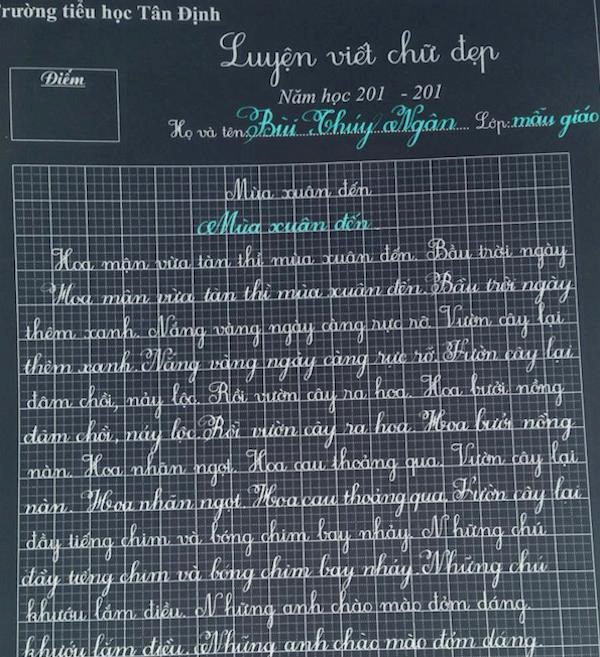 Trường tiểu học Tân Định
Luyện viết chữ đẹp
Điểm
Năm học 201 - 201
Họ và tên: Bùi Thúy Ngân Lớp: mẫu giáo
Mùa xuân đến
Mùa xuân đến
Hoa mận vừa tàn thì mùa xuân đến. Bầu trời ngày
Hoa mận vừa tàn thì mùa xuân đến. Bầu trời ngày
thêm xanh. Nắng vàng ngày càng rực rỡ. Vườn cây lại
thêm xanh. Nắng vàng ngày càng rực rỡ. Vườn cây lại
đâm chồi, nảy lộc. Rồi vườn cây ra hoa. Hoa bưởi nồng
đâm chồi, nảy lộc. Rồi vườn cây ra hoa. Hoa bưởi nồng
nàn. Hoa nhãn ngọt. Hoa cau thoảng qua. Vườn cây lại
nàn. Hoa nhãn ngọt. Hoa cau thoảng qua. Vườn cây lại
đầy tiếng chim và bóng chim bay nhảy. Những chú
đầy tiếng chim và bóng chim bay nhảy. Những chú
khướu lắm điều. Những anh chào mào đỏm dáng.
khướu lắm điều. Những anh chào mào đỏm dáng.